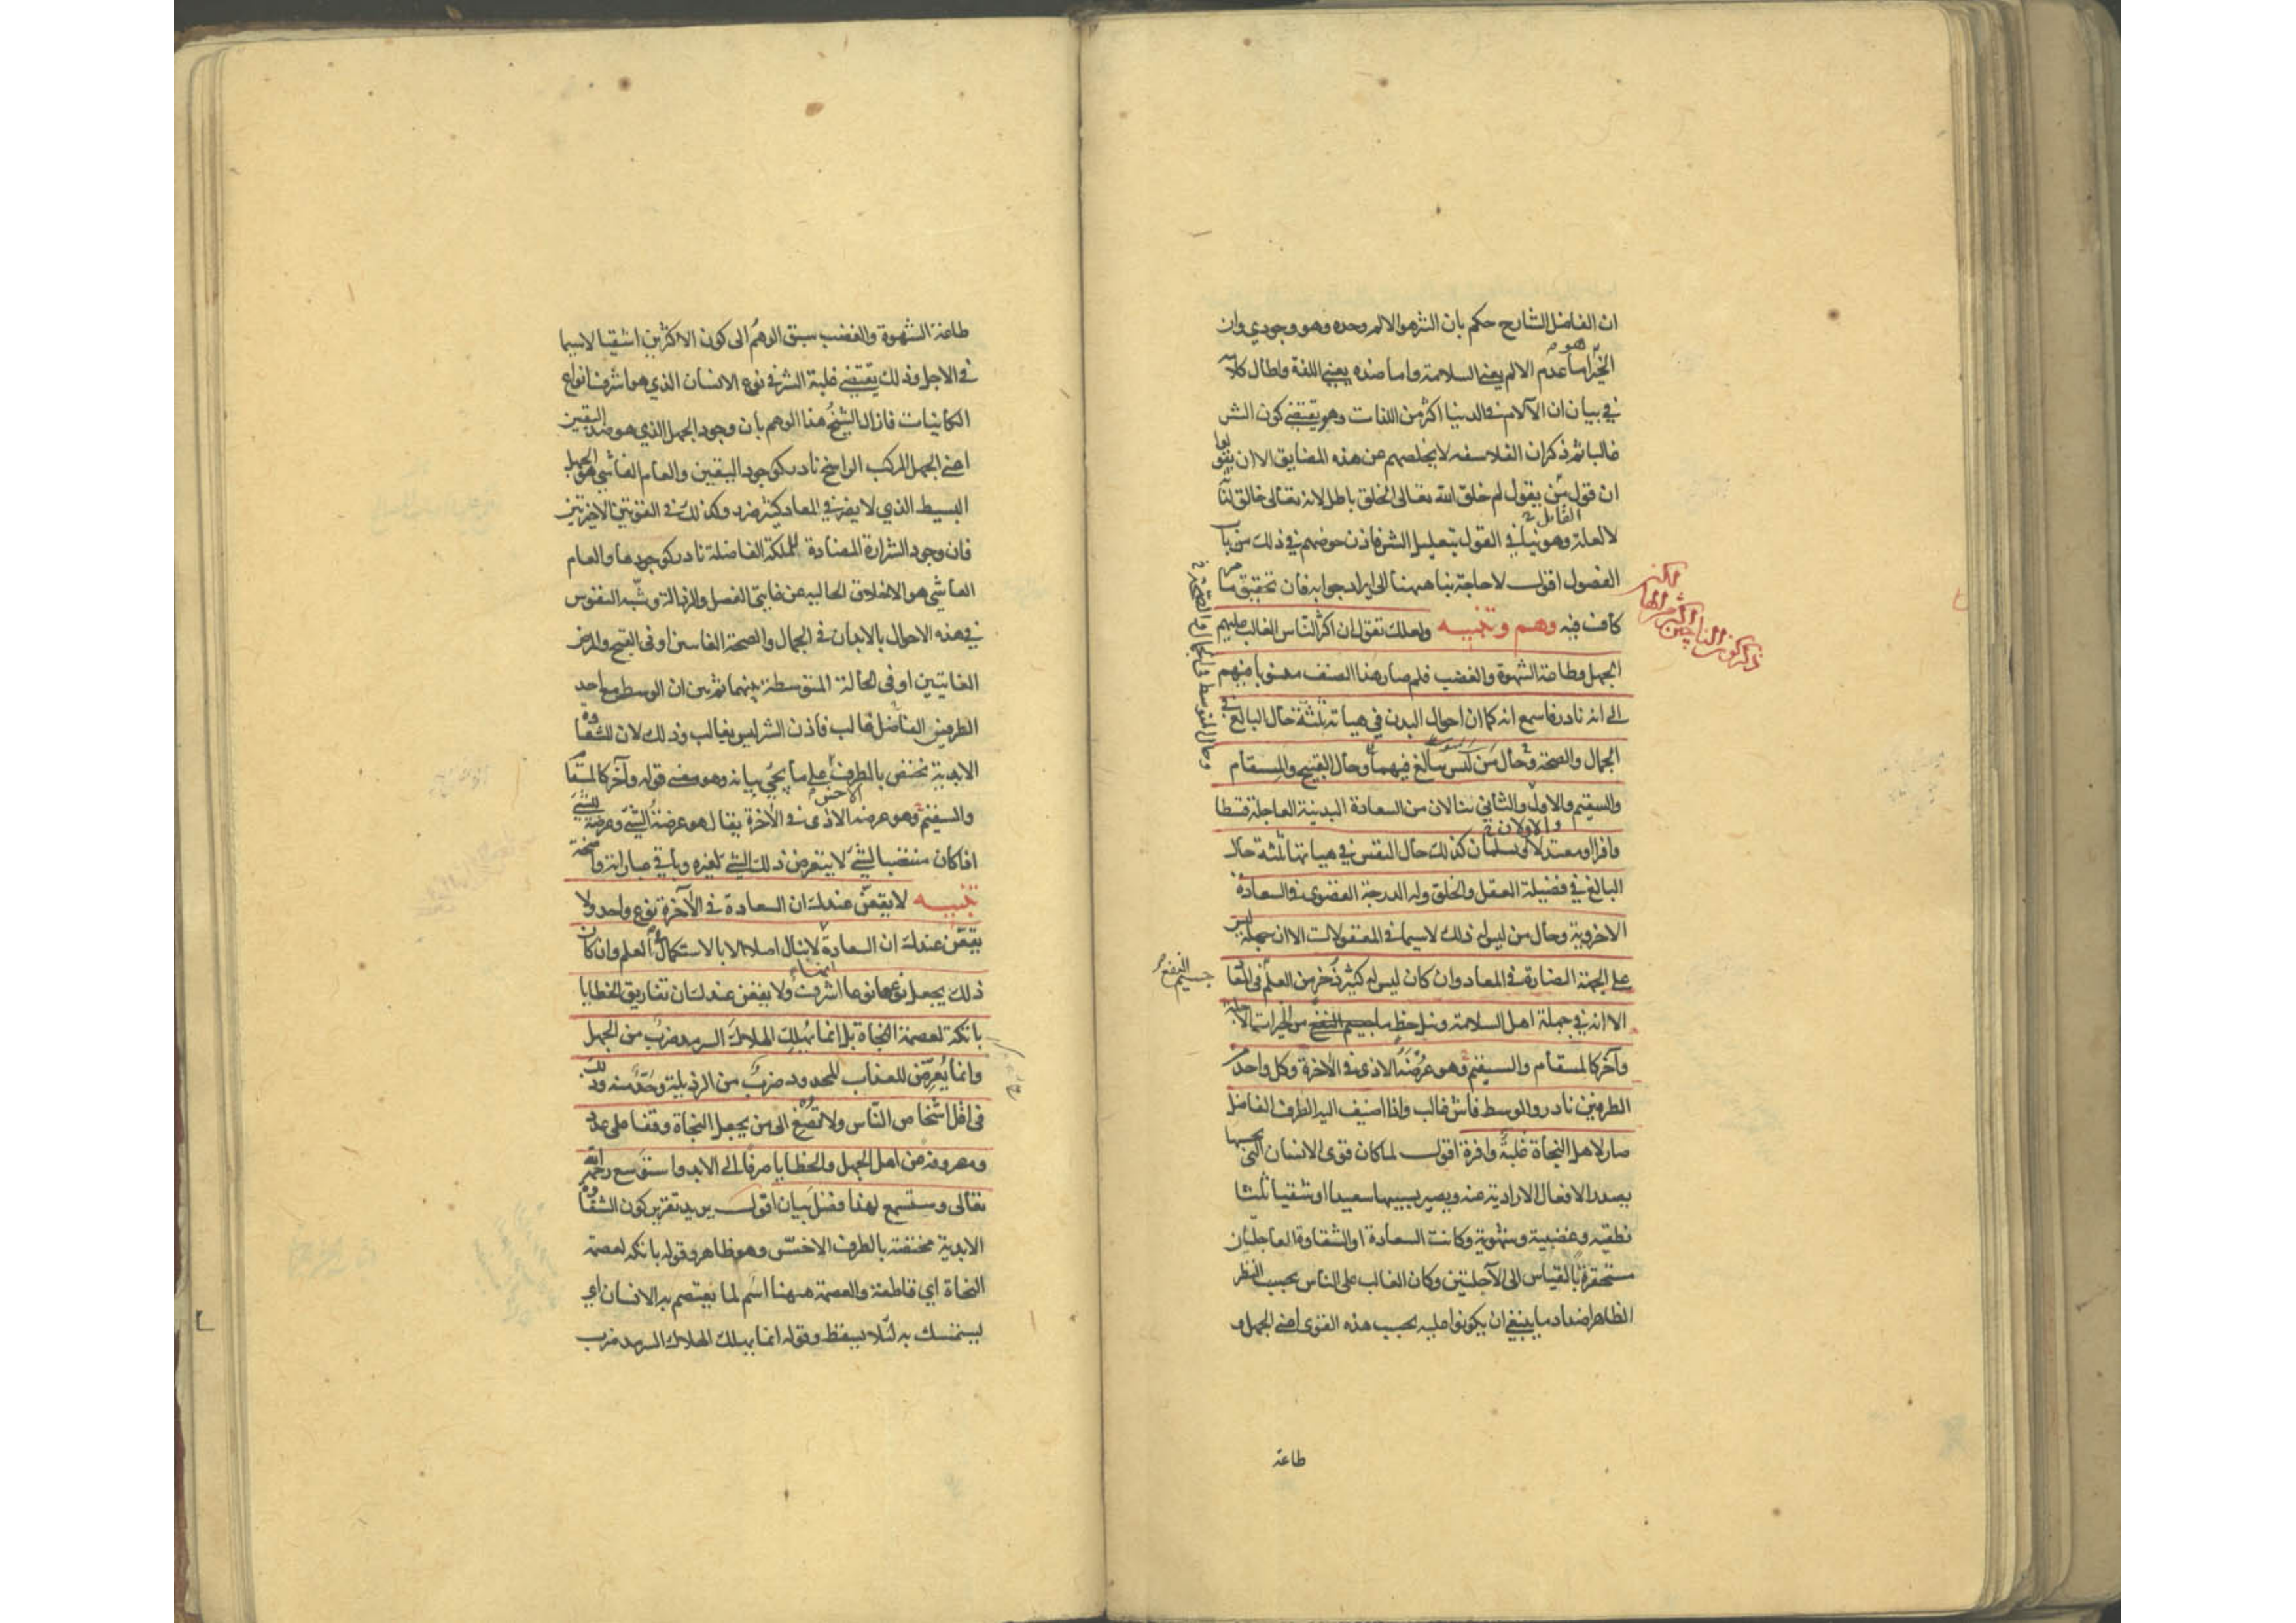 ان الفاضل الشارح حكم بان الشر هو الالم وحده وهو وجودي وان
هو
الخير اما عدم الالم يعني السلامة واما ضده يعني اللذة واطال كلامه
في بيان ان الآلام في الدنيا اكثر من اللذات وهو يقتضي كون الشر
غالبا ثم ذكر ان الفلاسفه لا يخلصهم عن هذه المضايق الا ان يقولوا
ان قول من يقول لم خلق الله تعالى الخلق باطل لانه تعالى خالق لذاته
لا لعلة وهو ينافي القول بتعليل الشر فاذن خوضهم في ذلك من باب
الفضول اقول لا حاجة بنا ههنا الى ايراد جوابه فان تحقيق ما مر
كاف فيه وهم وتنبيه ولعلك تقول ان اكثر الناس الغالب عليهم
الجهل وطاعة الشهوة والغضب فلم صار هذا الصنف منسوبا فيهم
الى انه نادر فاسمع انه كما ان احوال البدن في هيأته ثلثة حال البالغ في
الجمال والصحة وحال من ليس ببالغ فيهما وحال القبيح والمسقام
والسقيم والاول والثاني ينالان من السعادة البدنية العاجلة قسطا
وافرا او معتدلا او يسلمان كذلك حال النفس في هيأتها ثلثة حال
البالغ في فضيلة العقل والخلق وله الدرجة القصوى في السعادة
الاخروية وحال من ليس له ذلك لا سيما في المعقولات الا ان جهله ليس
على الجهة الضارة في المعاد وان كان ليس له كثير ذخر من العلم في المعاد
جسيم النفع
الا انه في جملة اهل السلامة ونيل حظ ما من الخيرات الآجلة
وآخر كالمسقام والسقيم وهو عرضة الاذى في الآخرة وكل واحد من
الطرفين نادر والوسط فاش غالب واذا اضيف اليه الطرف الفاضل
صار لاهل النجاة غلبة وافرة اقول لما كان قوى الانسان التي بحسبها
يصدر الافعال الارادية عنه ويصير بسببها سعيدا او شقيا ثلثا
نطقيه وغضبية وشهوية وكانت السعادة او الشقاوة العاجليتان
مستحقرة بالقياس الى الآجلتين وكان الغالب على الناس بحسب النظر
الظاهر اضداد ما ينبغي ان يكونوا عليه بحسب هذه القوى اعني الجهل و
طاعة
طاعة الشهوة والغضب سبق الوهم الى كون الاكثرين اشقيا لا سيما
في الآجل وذلك يقتضي غلبة الشر في نوع الانسان الذي هو اشرف انواع
الكائنات فازال الشيخ هذا الوهم بان وجود الجهل الذي هو ضد اليقين
اعني الجهل المركب الراسخ نادر كوجود اليقين والعام الفاشي هو الجهل
البسيط الذي لا يضر في المعاد كثير ضرر وكذلك في القوتين الاخيرتين
فان وجود الشرارة المضادة للملكة الفاضلة نادر كوجودها والعام
الفاشي هو الاخلاق الخالية عن غايتي الفضل والرذالة وشبه النفوس
في هذه الاحوال بالابدان في الجمال والصحة الغايتين او في القبح والمرض
الغايتين او في الحالة المتوسطة بينهما ثم بين ان الوسط مع احد
الطرفين الفاضل غالب فاذن الشر ليس بغالب وذلك لان الشقاوة
الابدية تختص بالطرف الاخس على ما يجي بيانه وهو معنى قوله وآخر كالمسقام
والسقيم وهو عرضة الاذى في الآخرة يقال هو عرضة الشي وعرضة للشي
اذا كان منتصبا لشي لا يتعرض ذلك الشي لغيره وباقي عباراته واضحة
تنبيه لا يقعن عندك ان السعادة في الآخرة نوع واحد ولا
يقعن عندك ان السعادة لا ينال اصلا الا بالاستكمال في العلم وان كان
ذلك يجعل نوعها نوعا اشرف ولا يقعن عندك ان تفاريق الخطايا
باتكة لعصمة النجاة بل انما يهلك الهلاك السرمد ضرب من الجهل
وانما يعرض للعذاب المحدود ضرب من الرذيلة وحد منه وذلك
في اقل اشخاص الناس ولا تصغ الى من يجعل النجاة وقفا على عدد
ومصروفة عن اهل الجهل والخطايا صرفا الى الابد واستوسع رحمة الله
تعالى وستسمع لهذا فضل بيان اقول يريد تقرير كون الشقاوة
الابدية مختصة بالطرف الاخس وهو ظاهر وقوله باتكة لعصمة
النجاة اي قاطعة والعصمة ههنا اسم لما يعتصم به الانسان اي
يستمسك به لئلا يسقط وقوله انما يهلك الهلاك السرمد ضرب